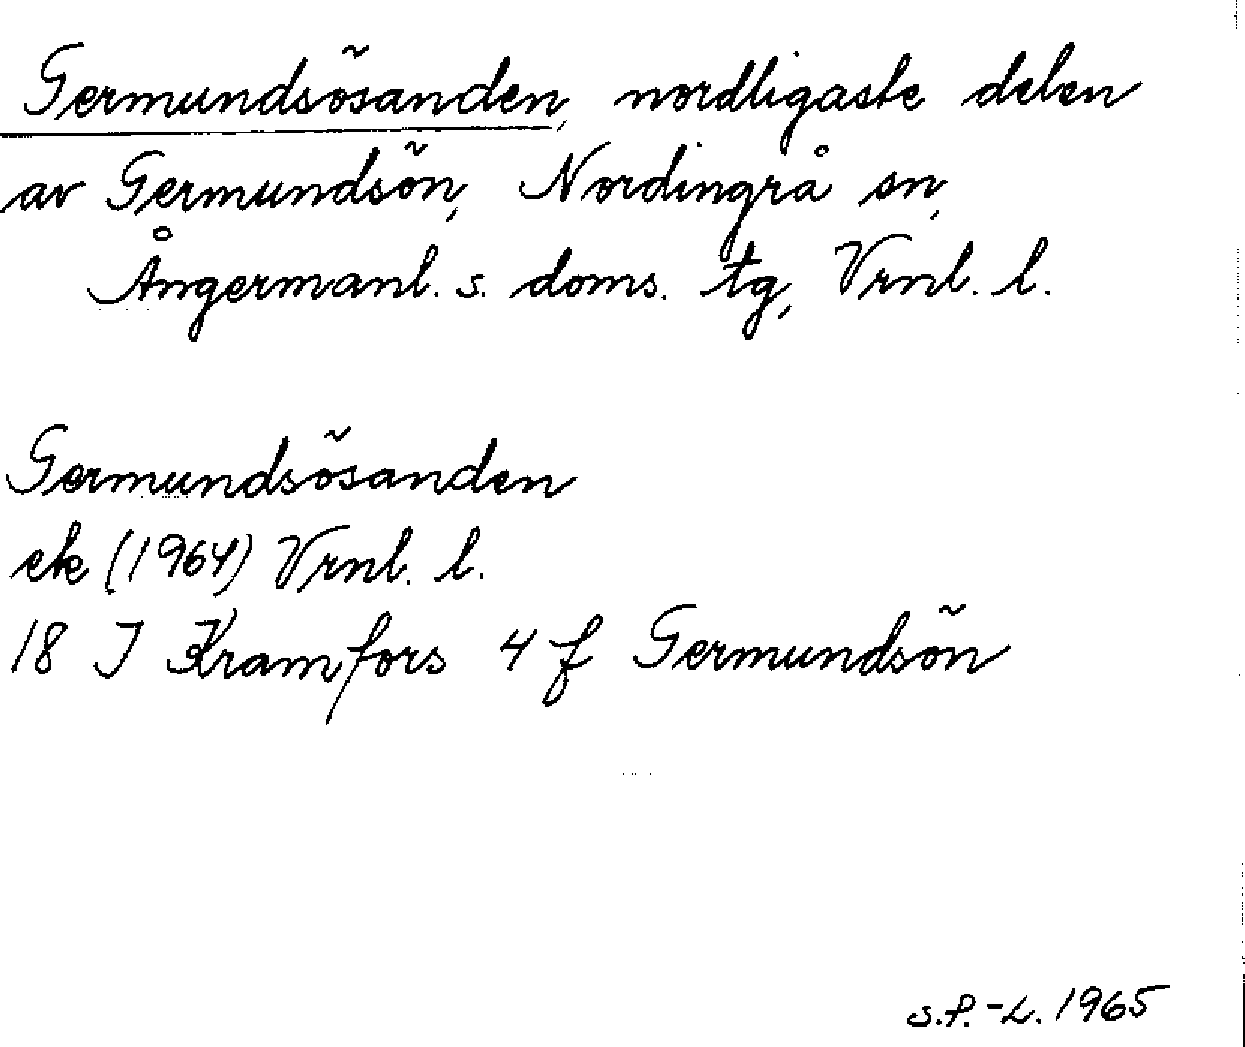 Germundsösanden, nordligaste delen
av Germundsön, Nordingrå sn,
Ångermanl. s. doms. tg, Vrnl. l.
Germundsösanden
ek (1964) Vrnl. l.
18 I Kramfors 4 f Germundsön
S.P.-L. 1965